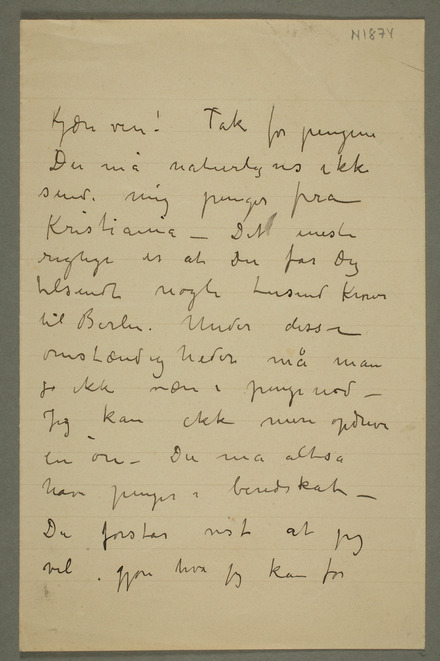 N1874
Kjære ven! Tak for pengene
Du må naturligvis ikke
sende mig penger fra
Kristiania – Det eneste
rigtige er at Du får Dig
tilsendt nogle tusend Kroner
til Berlin. Under disse
omstændigheder må man
jo ikke være i pengenød –
Jeg kan ikke mere opdrive
en öre – Du må altså
have penger i beredskab –
Du forstår vist at jeg
vil gjøre hva jeg kan for